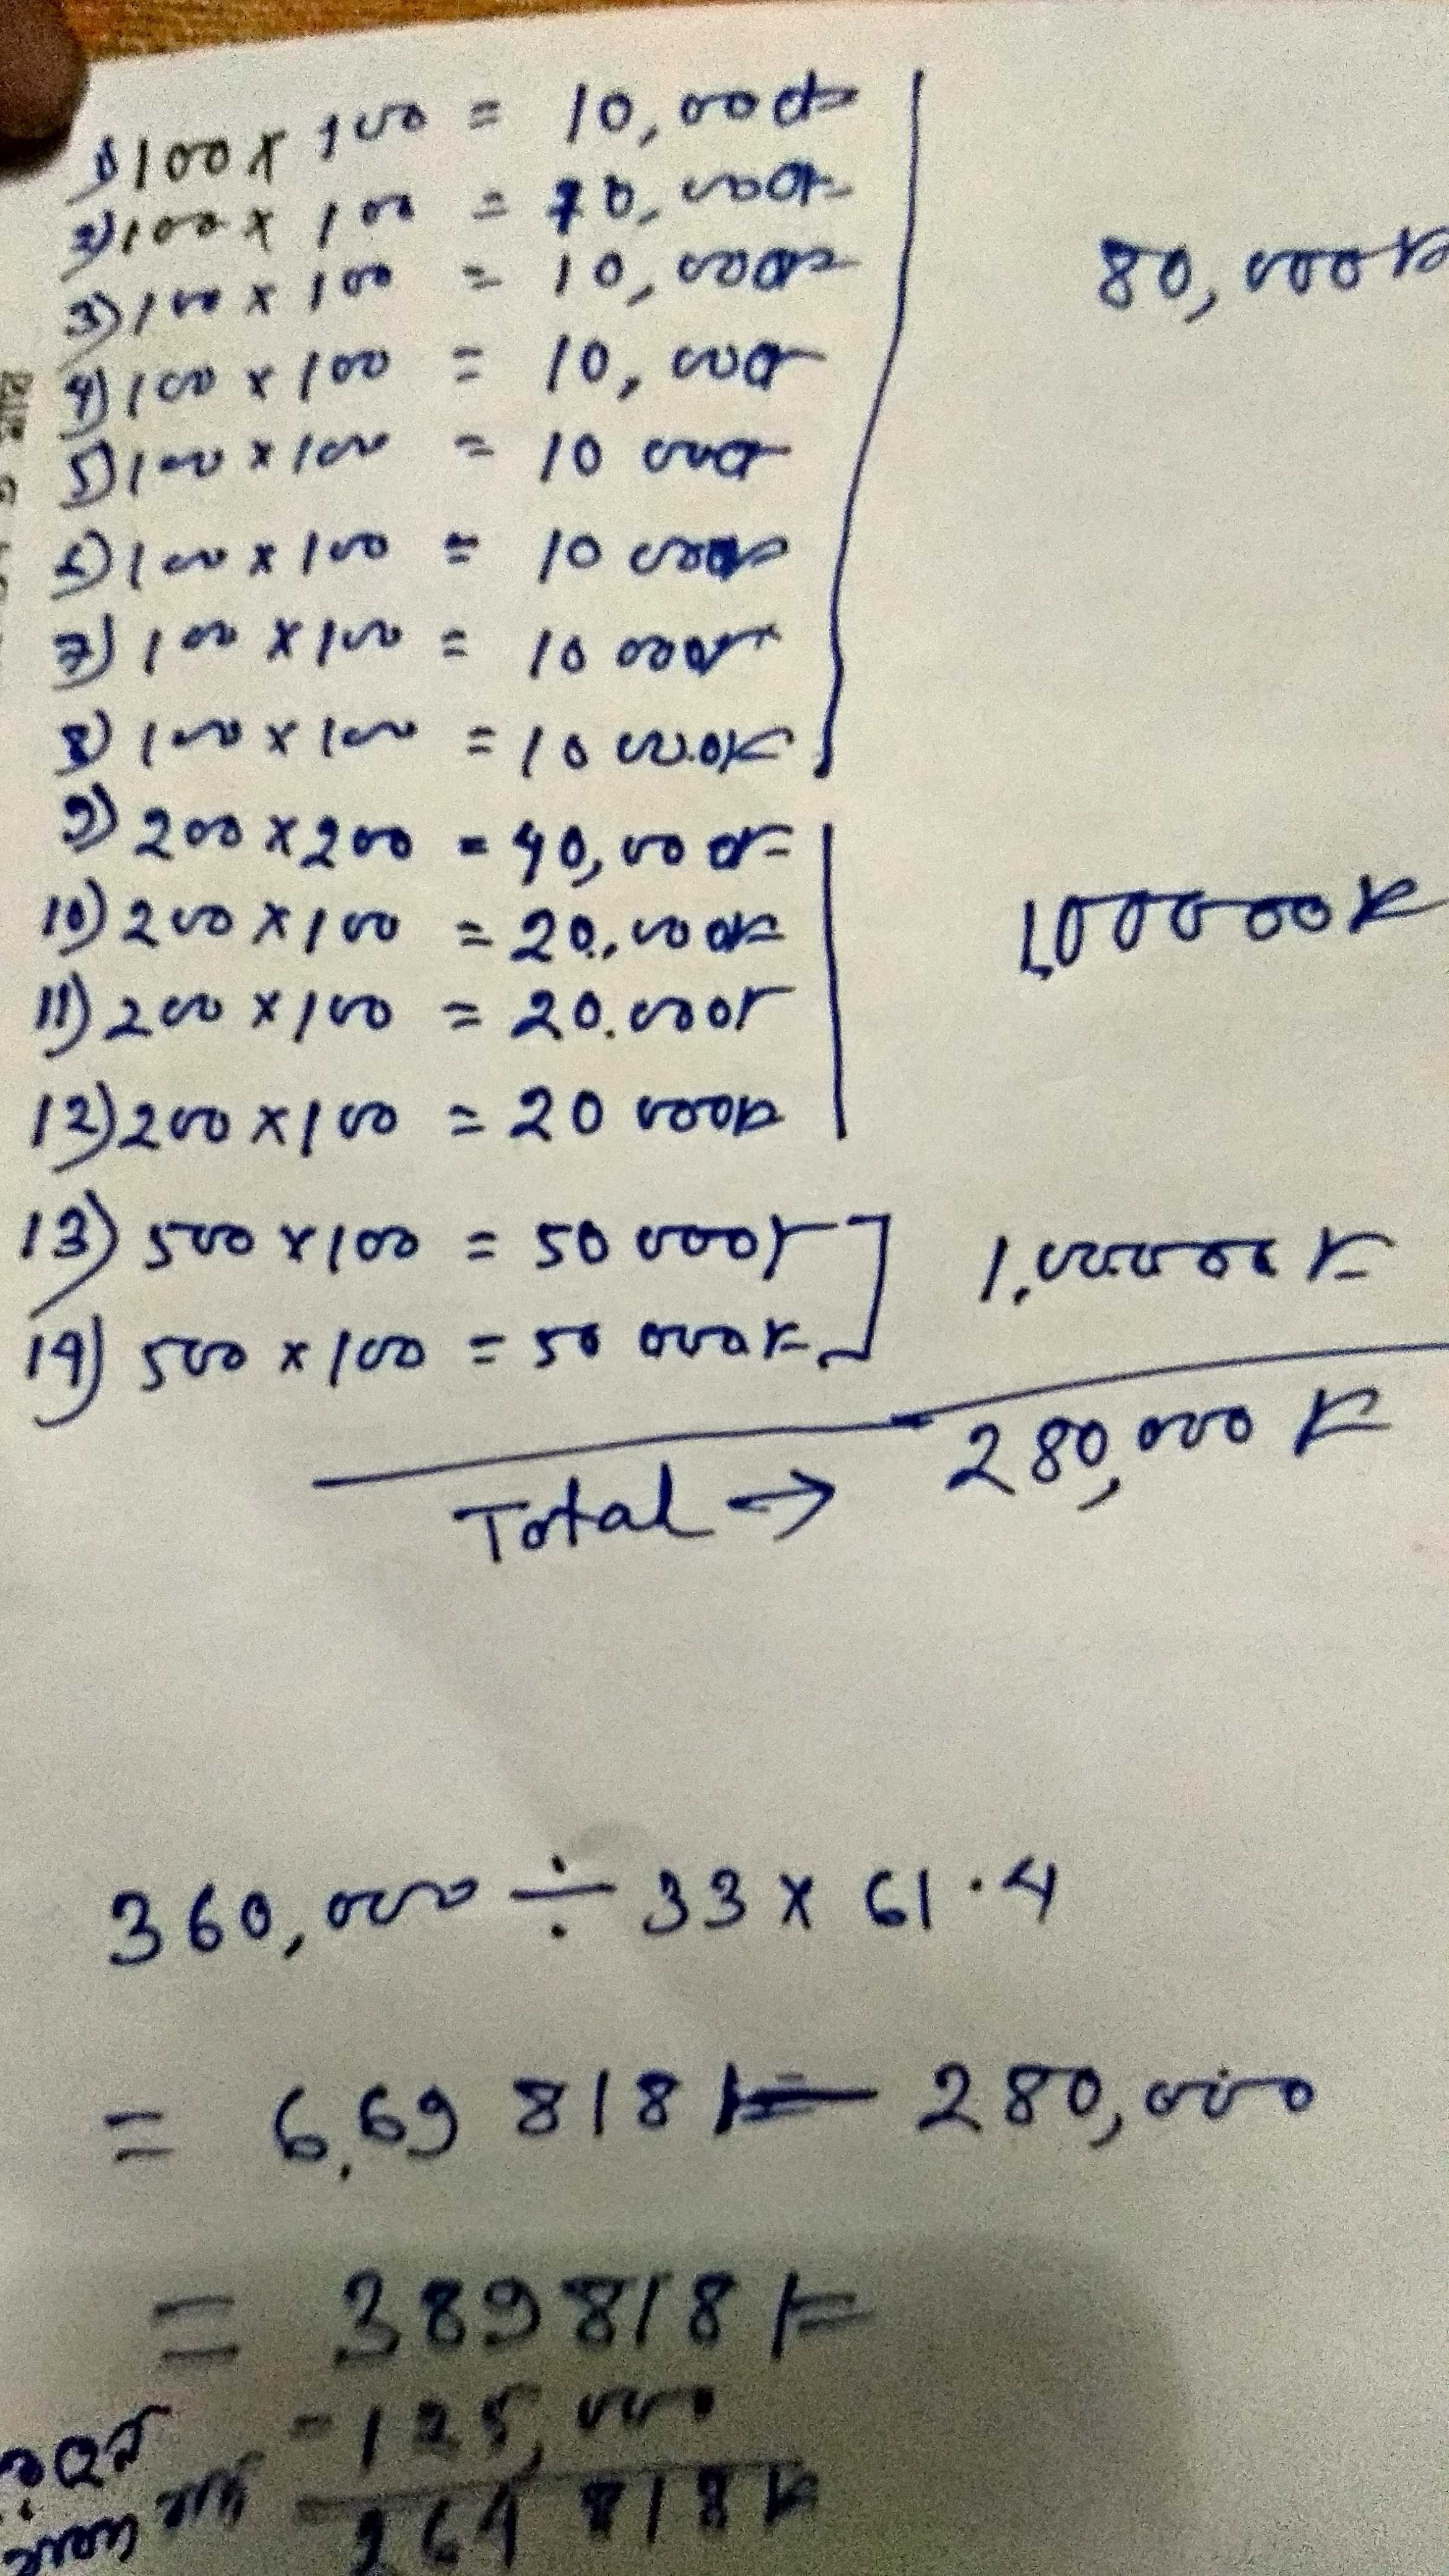 1) 100 x 100 = 10,000/=
2) 100 x 100 = 10,000/=
3) 100 x 100 = 10,000/=
4) 100 x 100 = 10,000/=
5) 100 x 100 = 10 000/=
6) 100 x 100 = 10 000/=
7) 100 x 100 = 10 000/=
8) 100 x 100 = 10 000/=
80,000/=
9) 200 x 200 = 40,000/=
10) 200 x 100 = 20,000/=
11) 200 x 100 = 20.000/=
12) 200 x 100 = 20 000/=
1,00000/=
13) 500 x 100 = 50 000/=
14) 500 x 100 = 50 000/=
1,00000/=
Total → 280,000/=
360,000 ÷ 33 x 61.4
= 6,69 818/= – 280,000
= 389818/=
- 125,000
264 818/=